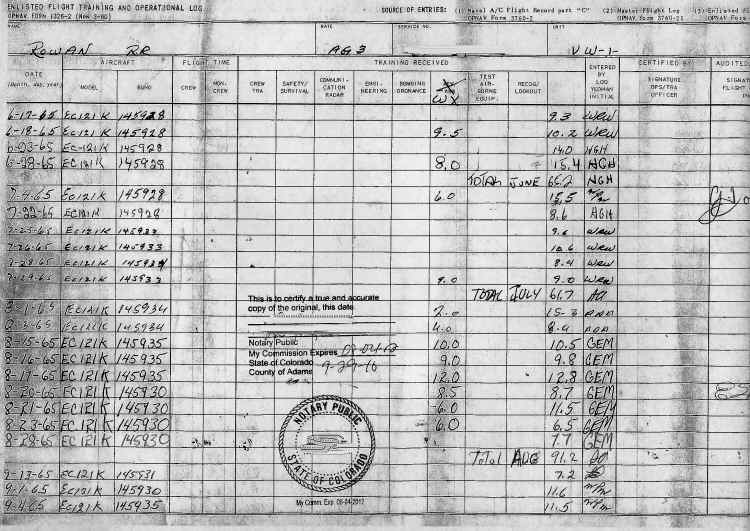 ENLISTED FLIGHT TRAINING AND OPERATIONAL LOG
OPNAV FORM 1326-2 (Nov 3-60)
SOURCE OF ENTRIES: (1) Naval A/C Flight Record part "C" (2) Master Flight Log (3) Enlisted Fl
OPNAV Form 3760-2 OPNAV Form 3760-21 OPNAV Form
NAME RATE UNIT
ROWAN RR AG3 VW-1-
AIRCRAFT FLIGHT TIME TRAINING RECEIVED ENTERED BY LOG YEOMAN INITIAL CERTIFIED BY AUDITED
DATE (Month, day, year) MODEL BUNO CREW NON-CREW CREW TRA SAFETY/SURVIVAL COMMUNICATION RADAR ENGINEERING BOMBING ORDNANCE WX TEST AIRBORNE EQUIP. RECOG/LOOKOUT SIGNATURE OPS/TRA OFFICER SIGNAT FLIGHT
6-17-65 EC121K 145928 9.3 WRW
6-18-65 EC121K 145928 9.5 10.2 WRW
6-23-65 EC-121K 145928 14.0 AGH
6-28-65 EC121K 145928 8.0 15.4 AGH
TOTAL JUNE 65.2 AGH
7-4-65 EC121K 145928 6.0 15.5
7-22-65 EC121K 145928 8.6 AGH
7-25-65 EC121K 9.6 WRW
7-26-65 EC121K 145933 10.6 WRW
7-28-65 EC121K 8.4 WRW
7-29-65 EC121K 145933 9.0 9.0 WRW
TOTAL JULY 61.7
This is to certify a true and accurate
copy of the original, this date
8-1-65 EC121K 145934 2.0 15-3
8-3-65 EC121K 145934 4.0 8.4
Notary Public
8-15-65 EC121K 145935 10.0 10.5 GEM
My Commission Expires
8-16-65 EC121K 145935 9.0 9.8 GEM
State of Colorado
County of Adams 9-29-10
8-17-65 EC121K 145935 12.0 12.8 GEM
8-20-65 EC121K 145930 8.5 8.7 GEM
8-21-65 EC121K 145930 6.0 11.5 GEM
8-23-65 EC121K 145930 6.0 6.5 GEM
8-28-65 EC121K 145930 7.7 GEM
NOTARY PUBLIC
STATE OF COLORADO
TOTAL AUG 91.2
9-13-65 EC121K 7.2
9-1-65 EC121K 145930 11.6
My Comm. Exp. 08-04-2012
9-4-65 EC121K 145935 11.5